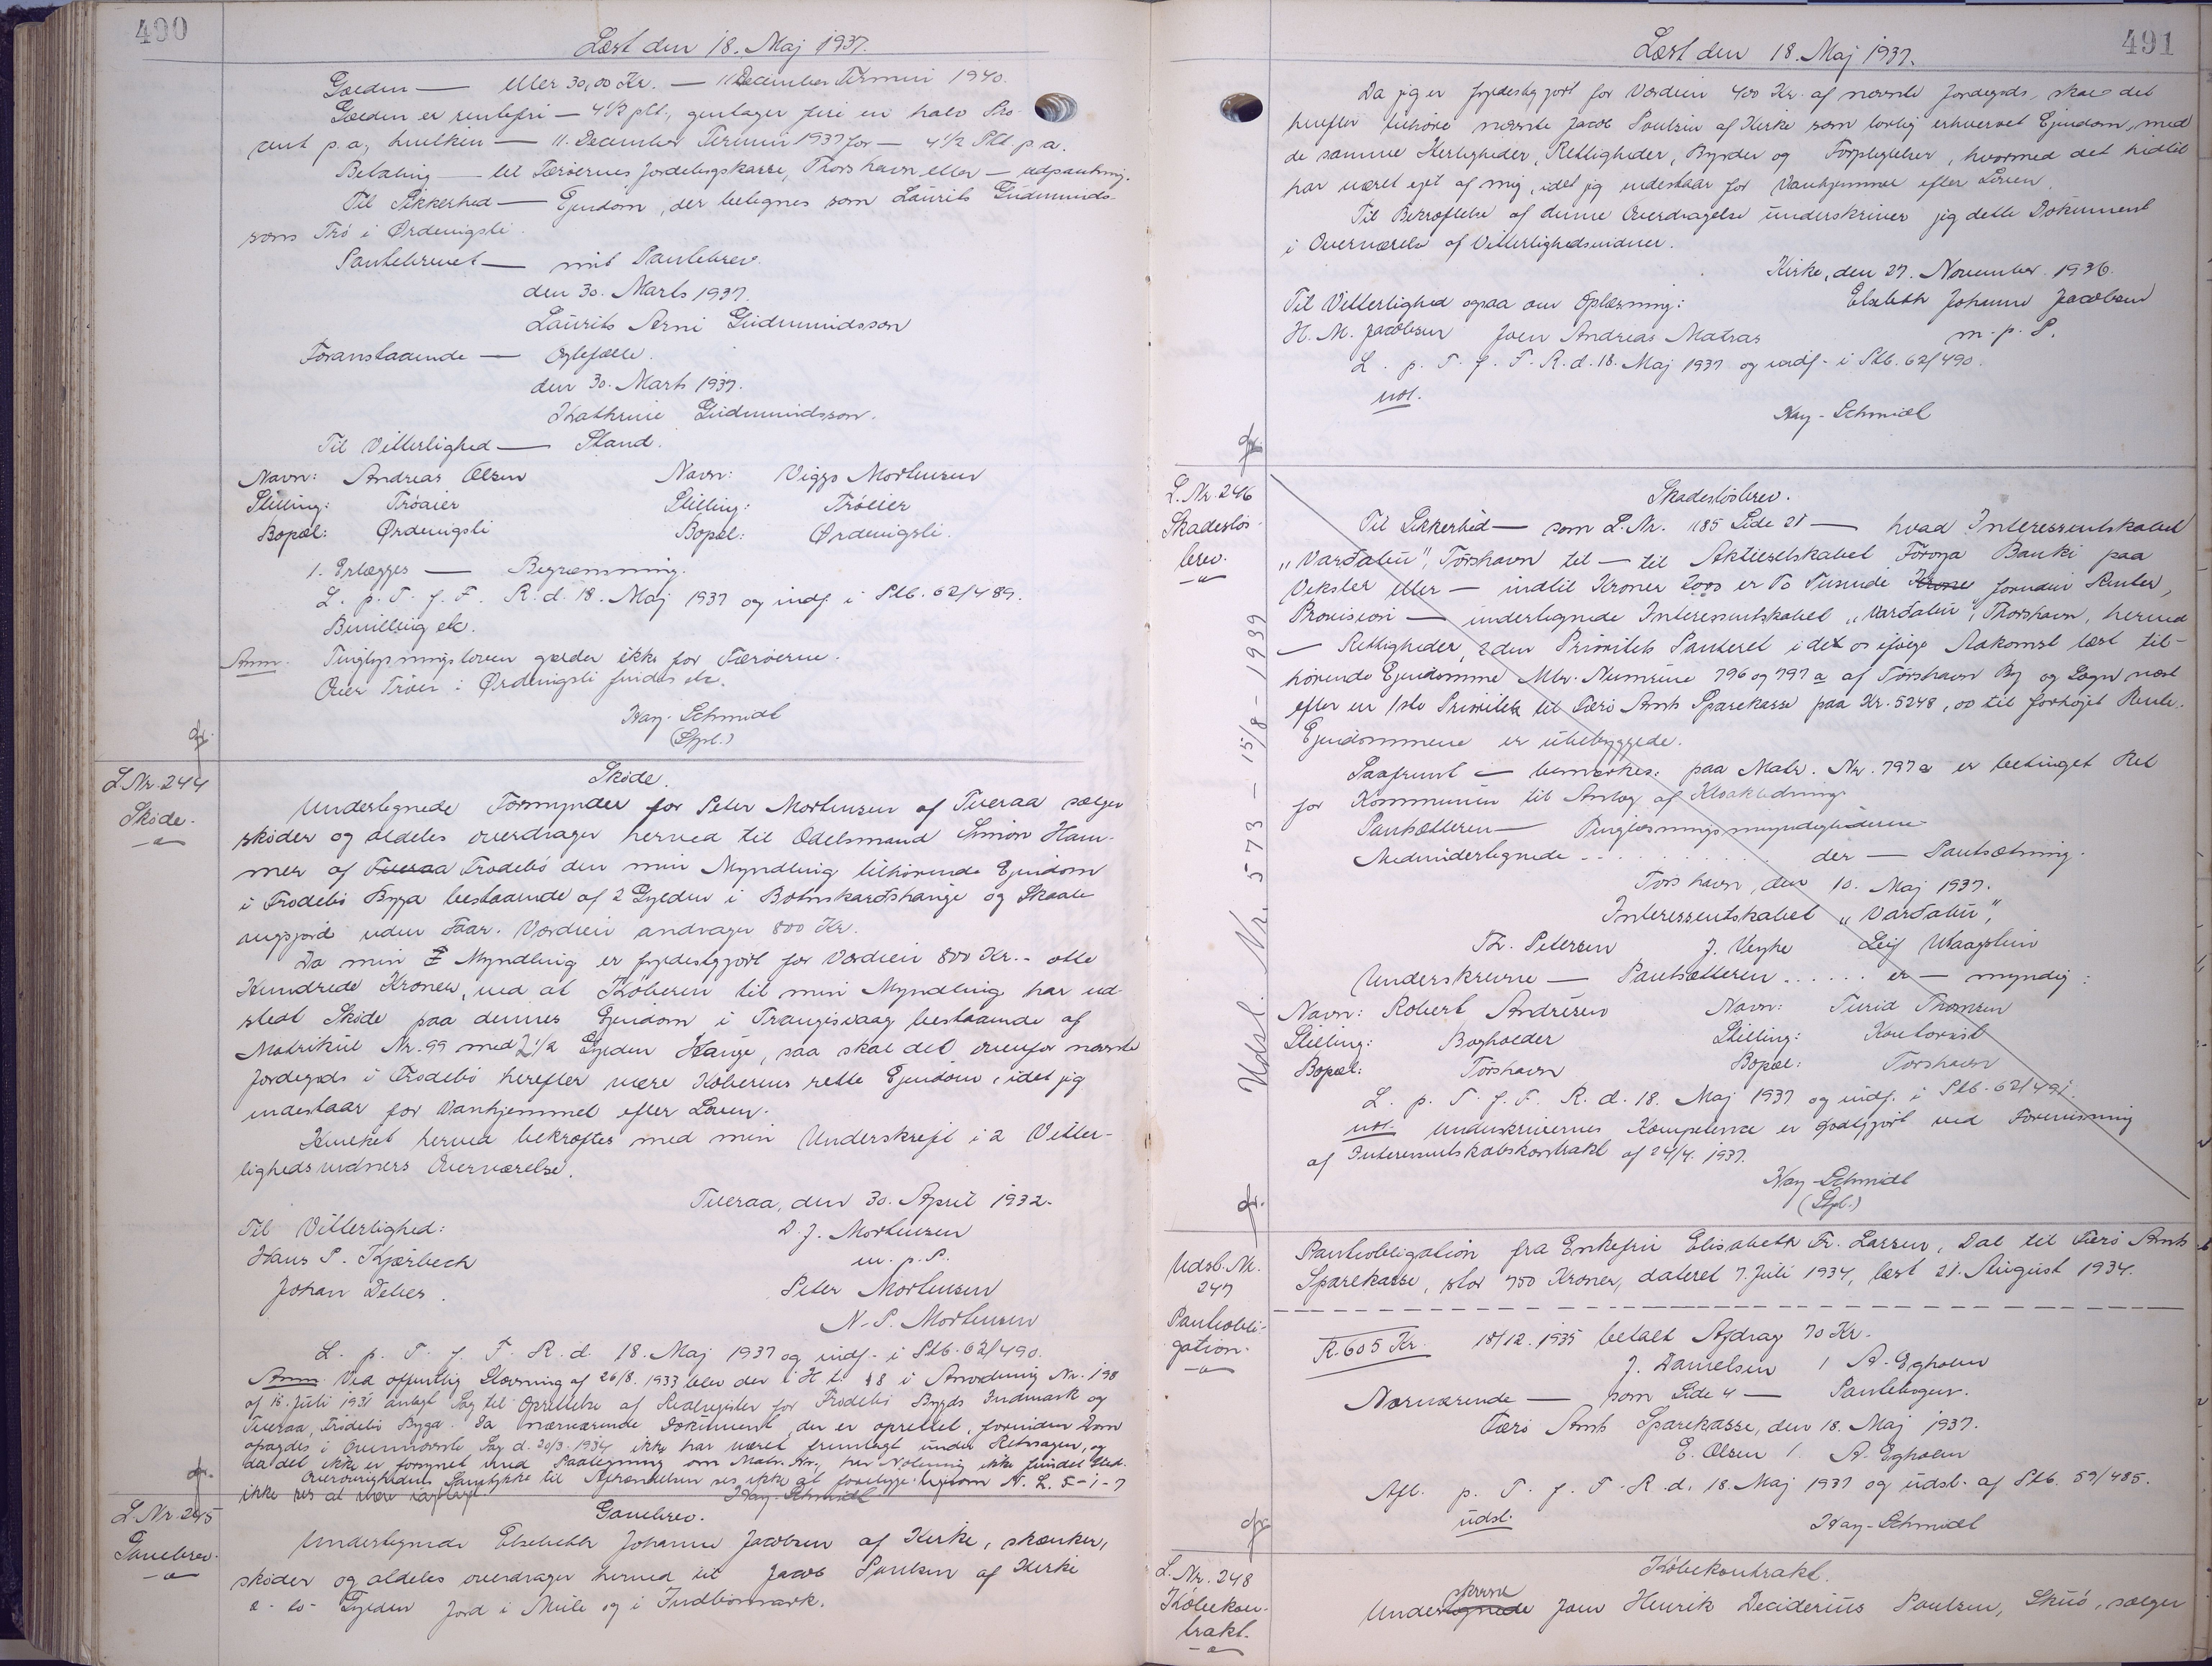 490
Læst den 18. Maj 1937.
Gælden — eller 30,00 Kr. — 11 December Termin 1940.
Gælden er rentefri — 4 1/2 pCt., gentager fire en halv Pro-
cent p.a., hvilken — 11. December Termin 1937 for — 4 1/2 Pct. p.a.
Betaling — til Færøernes Jordelagskasse, Thorshavn eller — udpantning.
Til Sikkerhed — Ejendom, der betegnes som Laurits Gudmunds-
sons Trø i Ørdevigsli.
Pantebrevet — mit Pantebrev.
den 30. Marts 1937.
Laurits Arni Gudmundsson
Foranstaaende — Ægtefælle.
den 30. Marts 1937.
Kathrine Gudmundsson.
Til Vitterlighed — Stand.
Navn: Andreas Olsen Navn: Viggo Morthensen
Stilling: Trøaier Stilling: Trøeier
Bopæl: Ørdevigsli Bopæl: Ørdevigsli.
1. Erlægges — Begrænsning.
L. p. T. f. F. R. d. 18. Maj 1937 og indf. i Ptb. 62/489.
Bevilling etc.
Anm. Tinglysningsloven gælder ikke for Færøerne.
Over Trøer i Ørdevigsli findes etc.
Kay-Schmidt
(Stpl.)
L Nr. 244
Skøde.
Skøde.
Undertegnede Formynder for Peter Morthensen af Tveraa sælger
skøder og aldeles overdrager herved til Odelsmand Simon Ham-
mer af Tveraa Frodebø den min Myndling tilhørende Ejendom
i Frodebø Bygd bestaaende af 2 Gylden i Botnskarðshauge og Skaale
vigsjord uden Faar. Værdien andrager 800 Kr.
Da min Myndling er fyldestgjort for Værdien 800 Kr. - otte
Hundrede Kroner, ved at Køberen til min Myndling har ud-
stedt Skøde paa dennes Ejendom i Trangisvaag bestaaende af
Matrikul Nr. 99 med 2 1/2 Gylden Hauge, saa skal det ovenfor nævnte
Jordegods i Frodebø herefter være Køberens rette Ejendom, idet jeg
indestaar for Vanhjemmel efter Loven.
Hvilket herved bekræftes med min Underskrift i 2 Vitter-
lighedsvidners Overværelse.
Tveraa, den 30. April 1932.
Til Vitterlighed: D. J. Morthensen
Hans P. Kjærbech m. p. P.
Johan Debes. Peter Morthensen
N. P. Morthensen
L. p. T. f. F. R. d. 18. Maj 1937 og indf. i Ptb. 62/490.
Anm. Ved offentlig Stævning af 26/8. 1933 blev der i H. t. § 8 i Anordning Nr. 198
af 15. Juli 1931 anlagt Sag til Oprettelse af Realregister for Frodebø Bygds Indmark og
Tveraa, Frodebø Bygd. Da nærværende Dokument, der er oprettet, forinden Dom
afsagdes i Ovennævnte Sag d. 20/3. 1934 ikke har været fremlagt under Retssagen, og
da det ikke er forsynet med Paategning om Matr. Nr., har Notering ikke fundet Sted.
Overøvrighedens Samtykke til Afhændelsen ses ikke at foreligge ligesom N. L. 5-1-7
ikke ses at være iagttaget.
Kay-Schmidt
L Nr. 245
Gavebrev.
Gavebrev.
Undertegnede Elsebeth Johanne Jacobsen af Kirke, skænker,
skøder og aldeles overdrager herved til Jacob Poulsen af Kirke
Gylden Jord i Mule og i Indbomark.
491
Læst den 18. Maj 1937.
Da jeg er fyldestgjort for Værdien 400 Kr. af nævnte Jordegods, skal det
herefter tilhøre nævnte Jacob Poulsen af Kirke som lovlig erhvervet Ejendom, med
de samme Herligheder, Rettigheder, Byrder og Forpligtelser, hvormed det hidtil
har været ejet af mig, idet jeg indestaar for Vanhjemmel efter Loven.
Til Bekræftelse af denne Overdragelse underskriver jeg dette Dokument
i Overværelse af Vitterlighedsvidner.
Kirke, den 27. November 1936.
Til Vitterlighed ogsaa om Oplæsning: Elsebeth Johanne Jacobsen
H. M. Jacobsen Joen Andreas Matras m. p. P.
L. p. T. f. F. R. d. 18. Maj 1937 og indf. i Ptb. 62/490.
not.
Kay-Schmidt
L. Nr. 246
Skadesløs-
brev.
Udsl. Nr. 573 — 15/8 - 1939
Skadesløsbrev.
Til Sikkerhed — som L. Nr. 1185 Side 21 — hvad Interessentskabet
„Varðatún", Tórshavn til — til Aktieselskabet Føroya Banki paa
Veksler eller — indtil Kroner 2000 er To Tusinde Krone foruden Renter,
Provision — undertegnede Interessentskabet „Varðatún", Thorshavn, herved
— Rettigheder, 2den Prioritets Panteret i de os ifølge Adkomst læst til-
hørende Ejendomme Mtr. Numrene 796 og 797 a af Tórshavn By og Sogn næst
efter en 1ste Prioritet til Færø Amts Sparekasse paa Kr. 5248,00 til forhøjet Rente.
Ejendommene er ubebyggede.
Saafremt — bemærkes: paa Matr. Nr. 797 a er betinget Ret
for Kommunen til Anlæg af Kloakledning.
Pantsætteren — Tinglæsningsmyndighederne
Medundertegnede . . . . . . . . der — Pantsætning.
Tórshavn, den 10. Maj 1937.
Interessentskabet „Varðatún",
Th. Petersen J. Veyhe Leif Waagstein
Underskrevne — Pantsætteren . . . . . er — myndig:
Navn: Robert Andrésen Navn: Turid Thomsen
Stilling: Bogholder Stilling: Kontorist
Bopæl: Tórshavn Bopæl: Tórshavn
L. p. T. f. F. R. d. 18. Maj 1937 og indf. i Ptb. 62/491.
not. Underskrivernes Kompetence er godtgjort ved Forevisning
af Interessentskabskontrakt af 24/4. 1937.
Kay-Schmidt
(Stpl.)
Udsl. Nr.
247
Pantobli-
gation.
Pantobligation fra Enkefru Elisabeth Fr. Larsen, Dal til Færø Amts
Sparekasse, stor 750 Kroner, dateret 7. Juli 1934, læst 21. August 1934.
R. 605 Kr. 18/12. 1935 betalt Afdrag 70 Kr.
J. Danielsen / A. Egholm
Nærværende — som Side 4 — Pantebogen.
Færø Amts Sparekasse, den 18. Maj 1937.
E. Olsen / A. Egholm
Afl. p. T. f. F. R. d. 18. Maj 1937 og udsl. af Ptb. 59/485.
udsl.
Kay-Schmidt
L. Nr. 248
Købekon-
trakt.
Købekontrakt.
Undertegnede skrevne Joen Henrik Deciderius Poulsen, Skuø, sælger